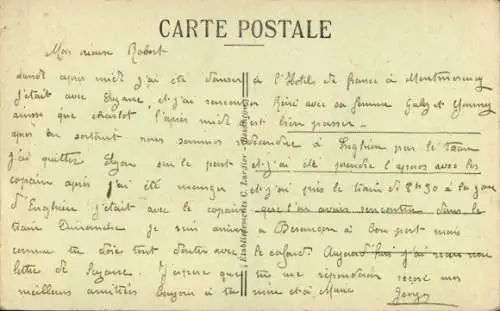 CARTE POSTALE
Mon vieux Robert
Lundi après midi j'ai été danser à l'Hotel de france à Montmorency
j'était avec Suzane, et j'ai rencontré Réné avec sa femme Gaby et
ainsi que charlot l'après midi est bien passer.
après en sortant nous sommes à Enghien par le Tram
j'ai quitter sur le port et j'ai été prendre l'apéros avec les
copain après j'ai été manger et j'ai pris le train de 8h30 à la gare
d'Enghien j'était avec le copain que l'on avais rencontrer dans le
train Dimanche Je suis arrivé à Besançon à bon port mais
comme tu dois tout douter avec le cafard. Aujourd'hui j'ai reçu une
lettre de Suzanne. J'espère que tu me répondra reçoi mes
meilleurs amitiées Bonjour à ta mère et à Marie
Etablissements C. Lardier - Besançon